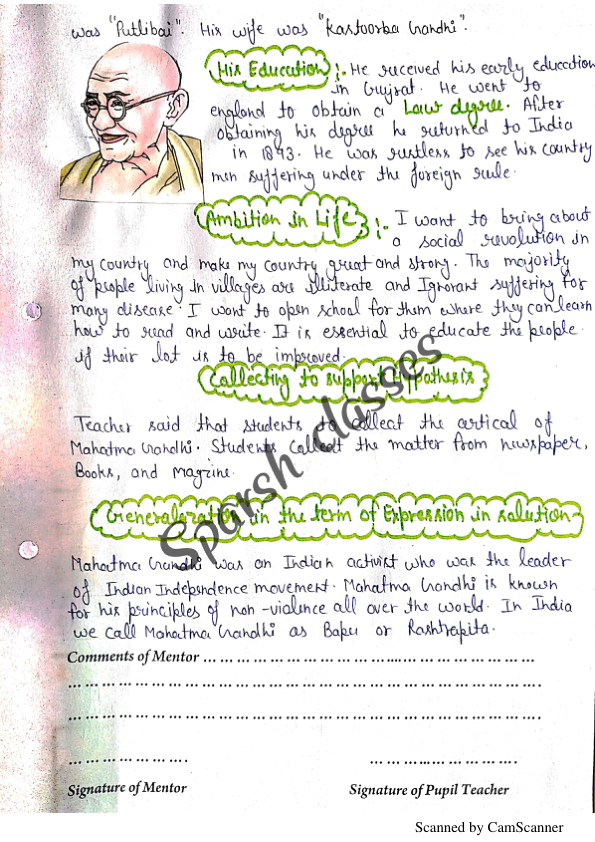 was "Putlibai". His wife was "Kastoorba Gandhi".
His Education :- He received his early education
in Gujrat. He went to
england to obtain a Law degree. After
obtaining his degree he returned to India
in 1893. He was rustless to see his country
men suffering under the foreign rule.
Ambition in Life :- I want to bring about
a social revolution in
my country and make my country great and strong. The majority
of people living in villages are illiterate and Ignorant suffering for
many disease. I want to open school for them where they can learn
how to read and write. It is essential to educate the people.
if their lot is to be improved.
Collecting to support Hypothesis
Teacher said that students to collect the artical of
Mahatma Gandhi. Students collect the matter from newspaper,
Books, and magzine.
Generalization in the term of Expression in salution
Mahatma Gandhi was an Indian activist who was the leader
of Indian Independence movement. Mahatma Gandhi is known
for his principles of non-violence all over the world. In India
we call Mahatma Gandhi as Bapu or Rashtrapita.
Sparsh classes
Comments of Mentor
Signature of Mentor Signature of Pupil Teacher
Scanned by CamScanner